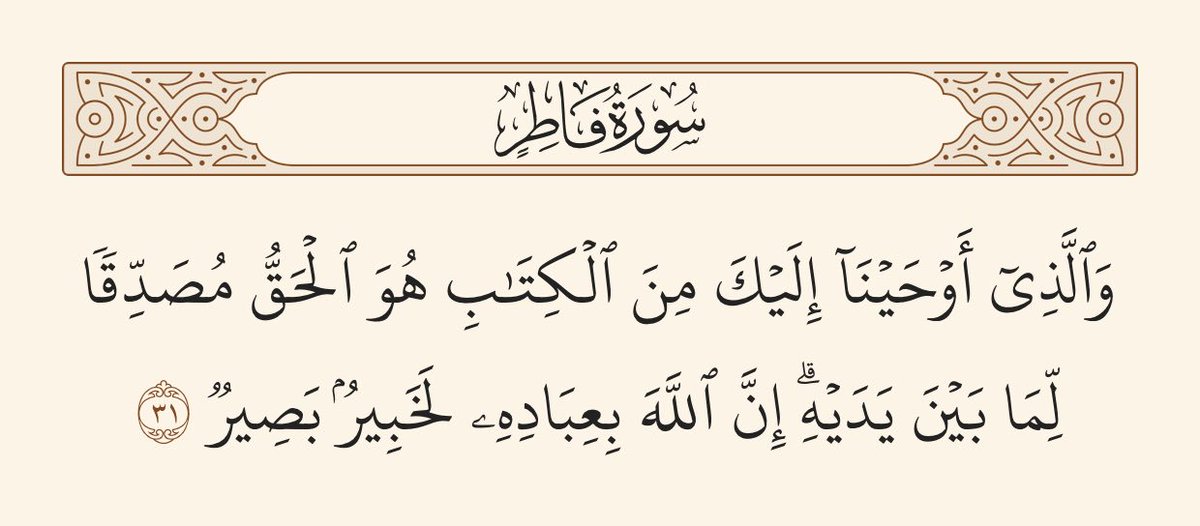 سُورَةُ فَاطِرٍ
وَٱلَّذِىٓ أَوۡحَيۡنَآ إِلَيۡكَ مِنَ ٱلۡكِتَٰبِ هُوَ ٱلۡحَقُّ مُصَدِّقٗا
لِّمَا بَيۡنَ يَدَيۡهِۗ إِنَّ ٱللَّهَ بِعِبَادِهِۦ لَخَبِيرُۢ بَصِيرٞ ٣١